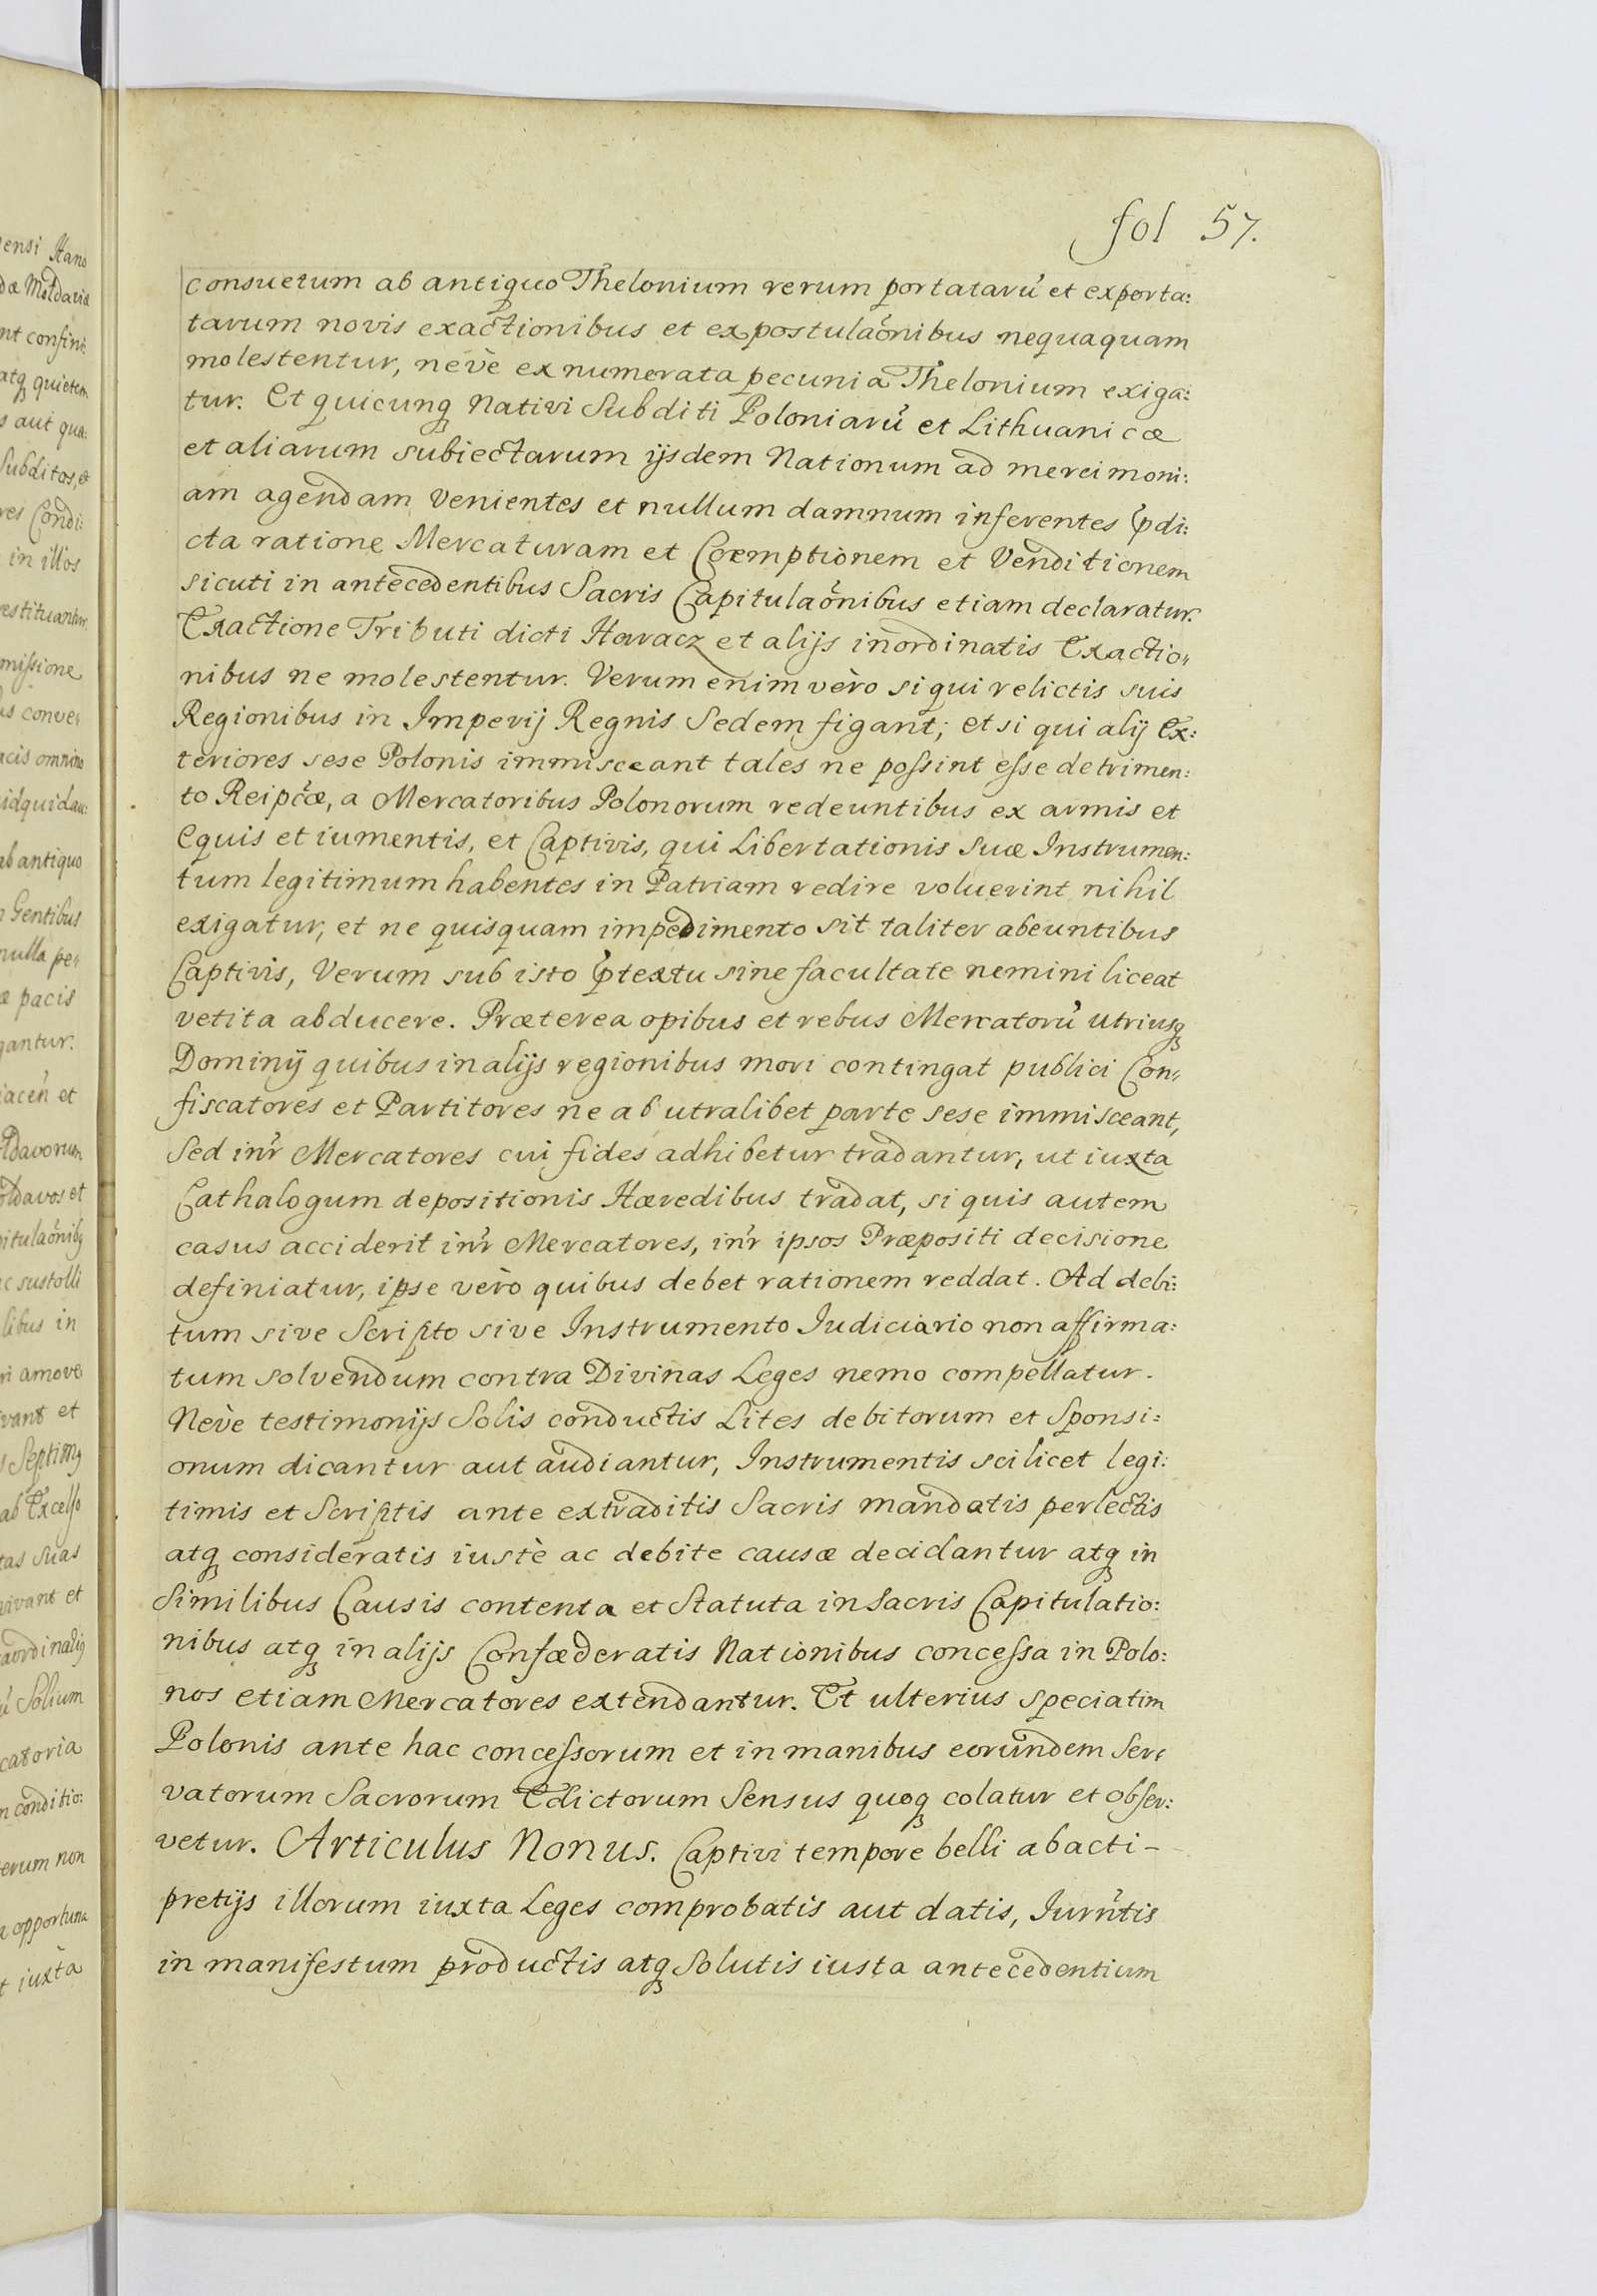 fol 57.
consuetum ab antiquo Thelonium rerum portatarũ et exporta:
tarum novis exactionibus et expostulaõnibus nequaquam
molestentur, nevè ex numerata pecunia Thelonium exiga:
tur. Et quicunq₃ Nativi Subditi Poloniarũ et Lithuanicæ
et aliarum subiectarum ijsdem Nationum ad mercimoni:
am agendam venientes et nullum damnum inferentes p̃di:
cta ratione Mercaturam et Coemptionem et Venditionem
sicuti in antecedentibus Sacris Capitulaõnibus etiam declaratur.
Exactione Tributi dicti Haracz et alijs inordinatis Exactio„
nibus ne molestentur. Verum enim vèro si qui relictis suis
Regionibus in Imperij Regnis Sedem figant; et si qui alij Ex:
teriores sese Polonis immisceant tales ne possint esse detrimen:
to Reipc̃æ, a Mercatoribus Polonorum redeuntibus ex armis et
Equis et iumentis, et Captivis, qui Libertationis Suæ Instrumen:
tum legitimum habentes in Patriam redire voluerint nihil
exigatur, et ne quisquam impedimento sit taliter abeuntibus
Captivis, Verum sub isto p̃textu sine facultate nemini liceat
vetita abducere. Præterea opibus et rebus Mercatorũ utriusq₃
Dominij quibus in alijs regionibus mori contingat publici Con„
fiscatores et Partitores ne ab utralibet parte sese immisceant,
Sed inr̃ Mercatores cui fides adhibetur tradantur, ut iuxta
Cathalogum depositionis Hæredibus tradat, si quis autem
casus acciderit inr̃ Mercatores, inr̃ ipsos Præpositi decisione
definiatur, ipse vèro quibus debet rationem reddat. Ad debi:
tum sive Scripto sive Instrumento Iudiciario non affirma:
tum solvendum contra Divinas Leges nemo compellatur.
Nevè testimonijs Solis conductis Lites debitorum et Sponsi:
onum dicantur aut audiantur, Instrumentis scilicet legi:
timis et Scriptis ante extraditis Sacris mandatis perlectis
atq₃ consideratis iustè ac debite causæ decidantur atq₃ in
Similibus Causis contenta et Statuta in Sacris Capitulatio:
nibus atq₃ in alijs Confæderatis Nationibus concessa in Polo:
nos etiam Mercatores extendantur. Et ulterius speciatim
Polonis ante hac concessorum et in manibus eorundem Ser„
vatorum Sacrorum Edictorum Sensus quoq₃ colatur et obser:
vetur. Articulus Nonus. Captivi tempore belli abacti –
pretijs illorum iuxta Leges comprobatis aut datis, Iurñtis
in manifestum productis atq₃ Solutis iusta antecedentium